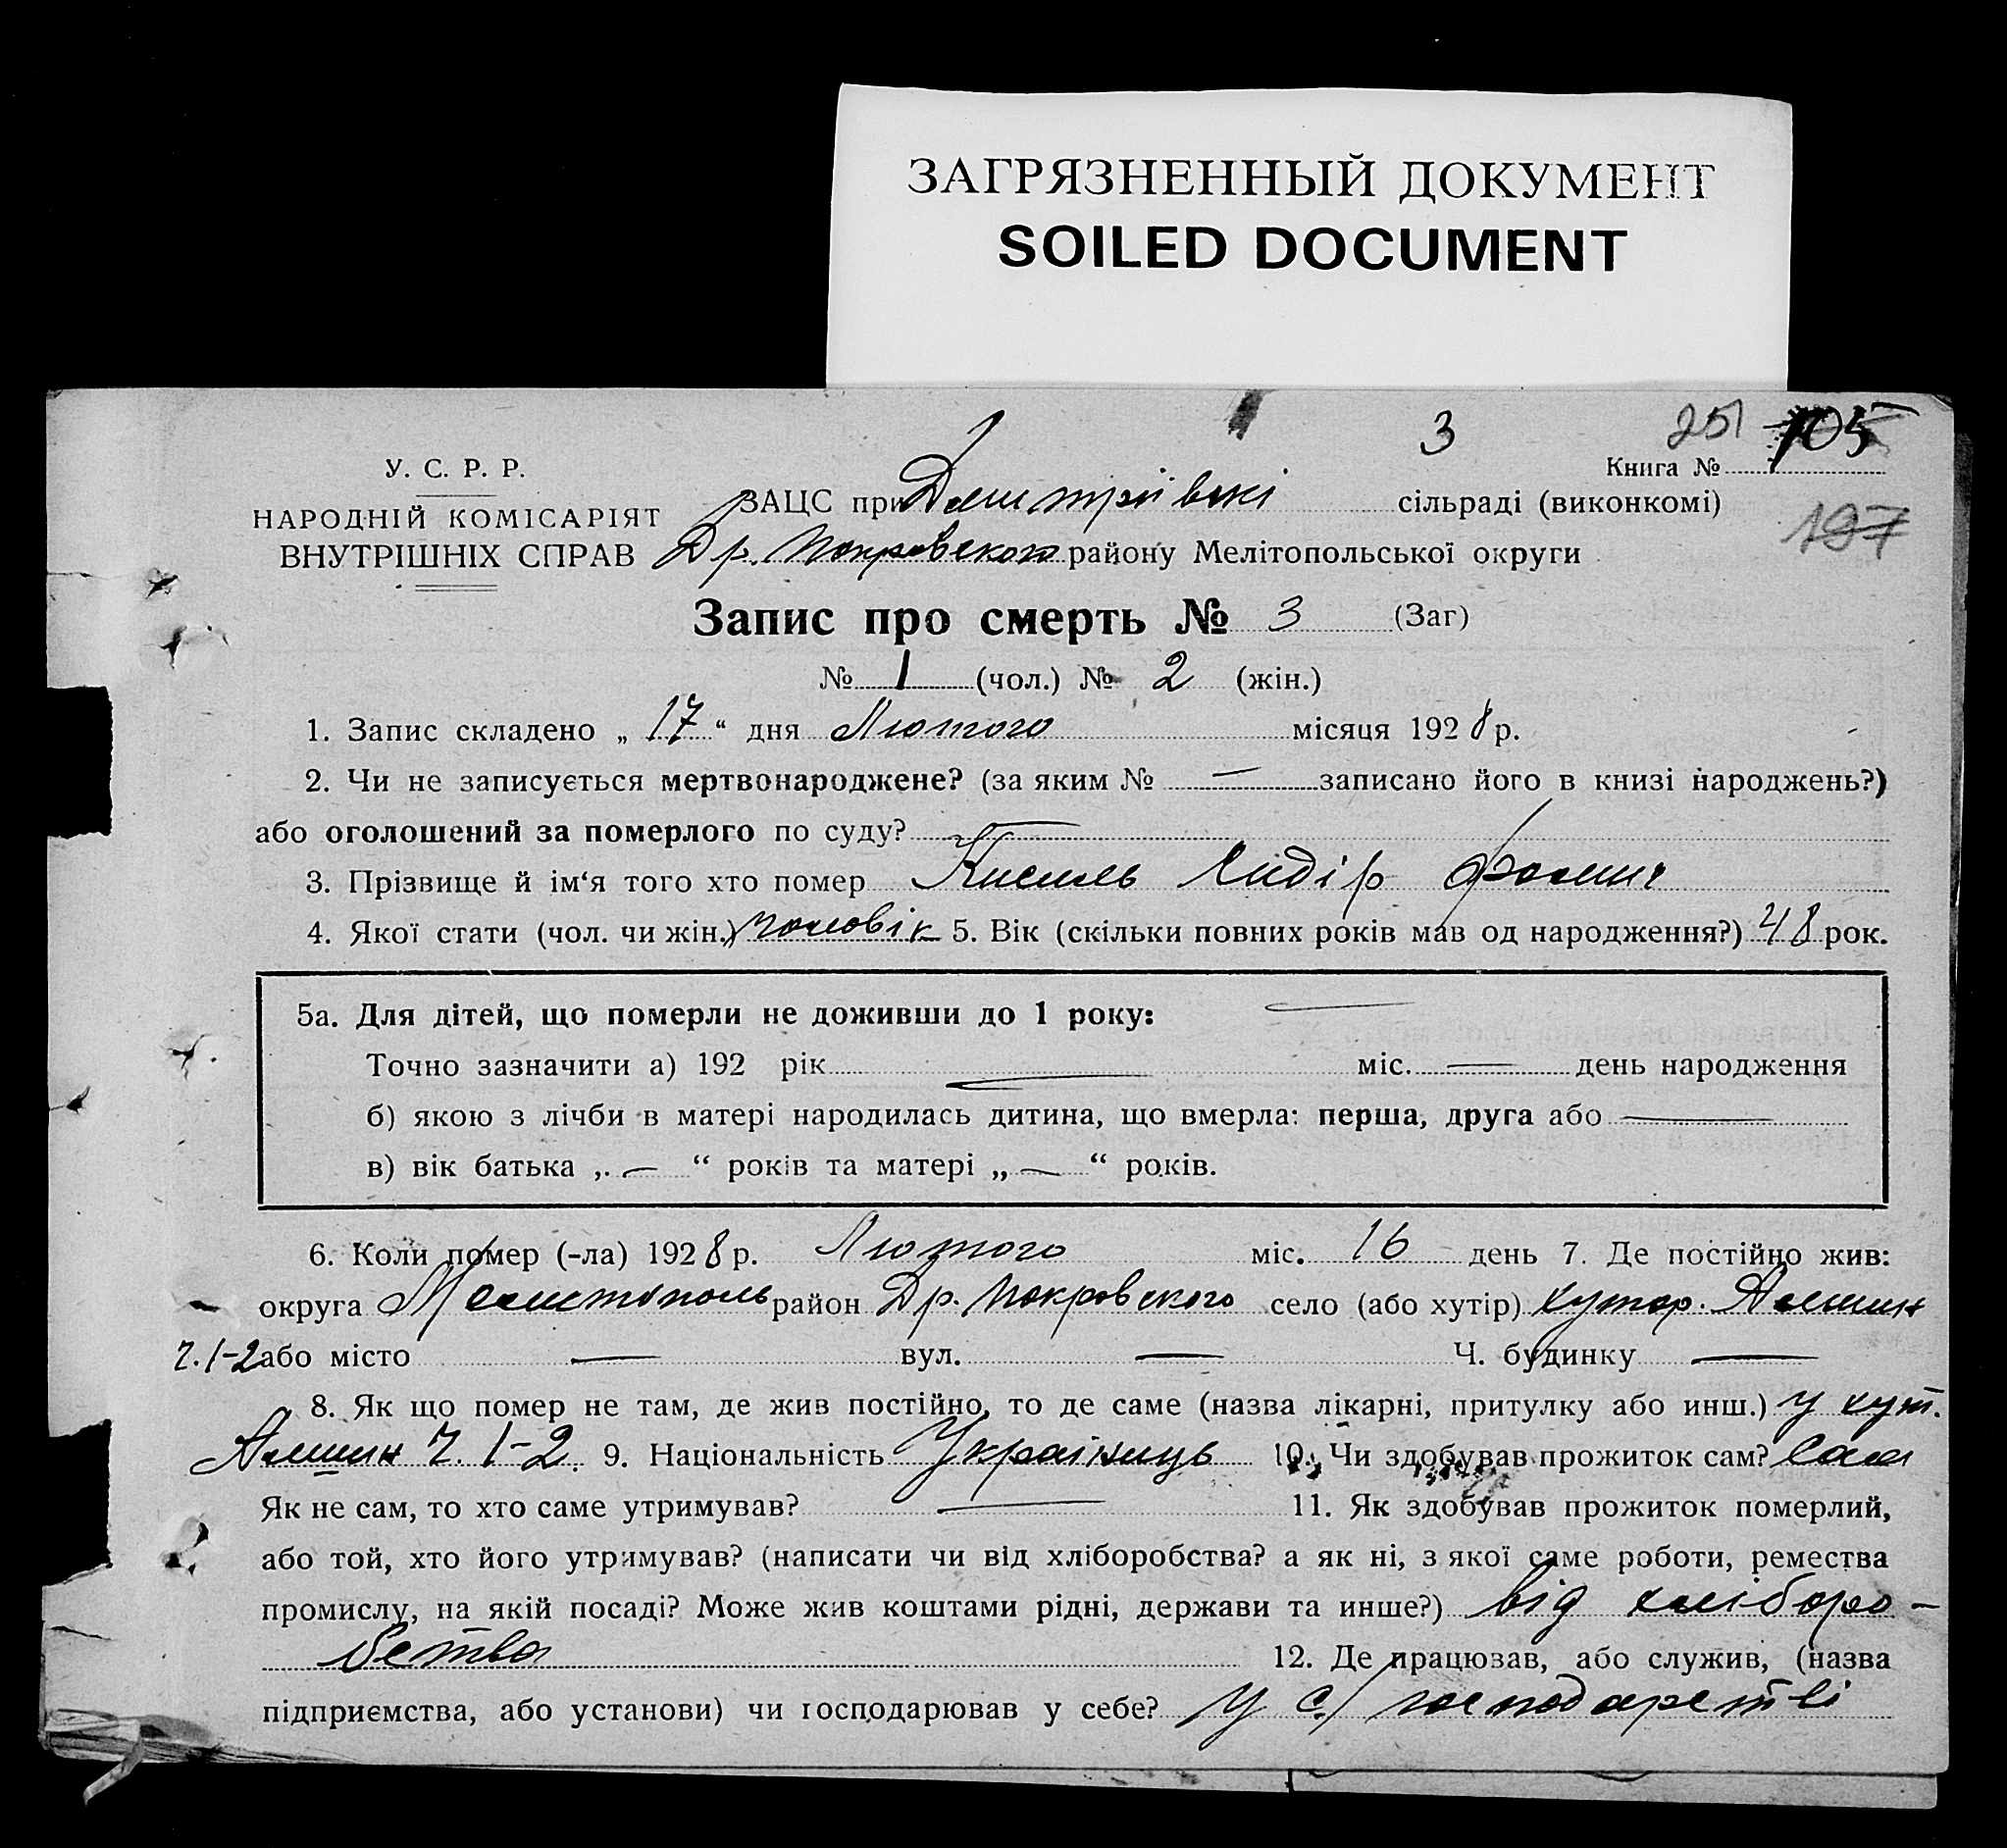 ЗАГРЯЗНЕННЫЙ ДОКУМЕНТ
SOILED DOCUMENT
3 251 105
У. С. Р. Р. Книга №
НАРОДНІЙ КОМІСАРІЯТ ЗАЦС при Дмитрівскі сільраді (виконкомі)
197
ВНУТРІШНІХ СПРАВ Др. Покровского району Мелітопольської округи
Запис про смерть № 3 (Заг)
№ 1 (чол.) № 2 (жін.)
1. Запис складено „ 17 “ дня Лютого місяця 1928 р.
2. Чи не записується мертвонароджене? (за яким № — записано його в книзі народжень?)
або оголошений за померлого по суду? —
3. Прізвище й ім‘я того хто помер Кисиль Фомич
4. Якої стати (чол. чи жін.) чоловік 5. Вік (скільки повних років мав од народження?) 48 рок.
5а. Для дітей, що померли не доживши до 1 року: —
Точно зазначити а) 192 рік — міс. — день народження
б) якою з лічби в матері народилась дитина, що вмерла: перша, друга або —
в) вік батька „ — “ років та матері „ — “ років.
6. Коли помер (-ла) 1928 р. Лютого міс. 16 день 7. Де постійно жив:
округа Мелитополь район Др. Покровского село (або хутір) хутор.
ч. 1-2 або місто — вул. — Ч. будинку —
8. Як що помер не там, де жив постійно, то де саме (назва лікарні, притулку або инш.) у хут.
ч. 1-2. 9. Національність Українець 10. Чи здобував прожиток сам? сам
Як не сам, то хто саме утримував? — 11. Як здобував прожиток померлий,
або той, хто його утримував? (написати чи від хліборобства? а як ні, з якої саме роботи, ремества
промислу, на якій посаді? Може жив коштами рідні, держави та инше?) від хліборо-
бства 12. Де працював, або служив, (назва
підприємства, або установи) чи господарював у себе? У с/господарстві